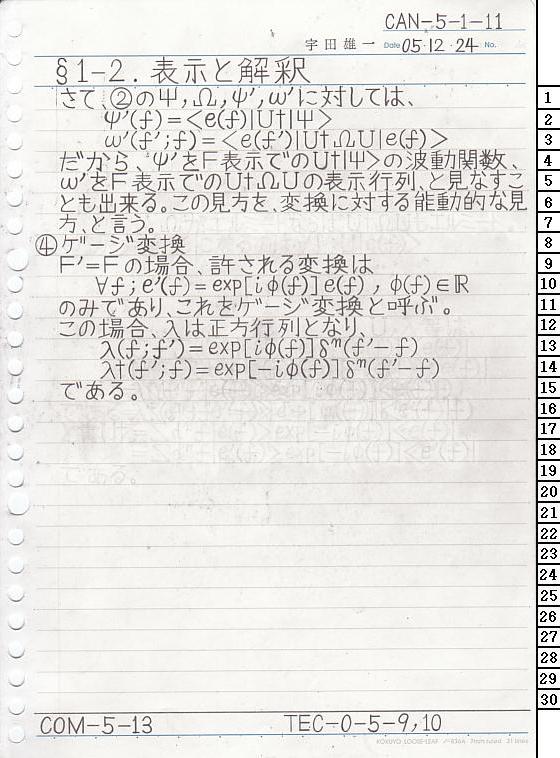 CAN-5-1-11
宇田雄一 Date 05・12・24 No.
§1-2. 表示と解釈
さて、②のΨ,Ω,ψ',ω'に対しては、
ψ'(f)=<e(f)|U†|Ψ>
ω'(f';f)=<e(f')|U†ΩU|e(f)>
だから、ψ'をF表示でのU†|Ψ>の波動関数、
ω'をF表示でのU†ΩUの表示行列、と見なすこ
とも出来る。この見方を、変換に対する能動的な見
方、と言う。
④ゲージ変換
F'=Fの場合、許される変換は
∀f;e'(f)=exp[iφ(f)]e(f),φ(f)∈ℝ
のみであり、これをゲージ変換と呼ぶ。
この場合、λは正方行列となり、
λ(f;f')=exp[iφ(f)]δⁿ(f'-f)
λ†(f';f)=exp[-iφ(f)]δⁿ(f'-f)
である。
1
2
3
4
5
6
7
8
9
10
11
12
13
14
15
16
17
18
19
20
21
22
23
24
25
26
27
28
29
30
COM-5-13 TEC-0-5-9,10
KOKUYO LOOSE-LEAF ノ-836A 7mm ruled 31 lines